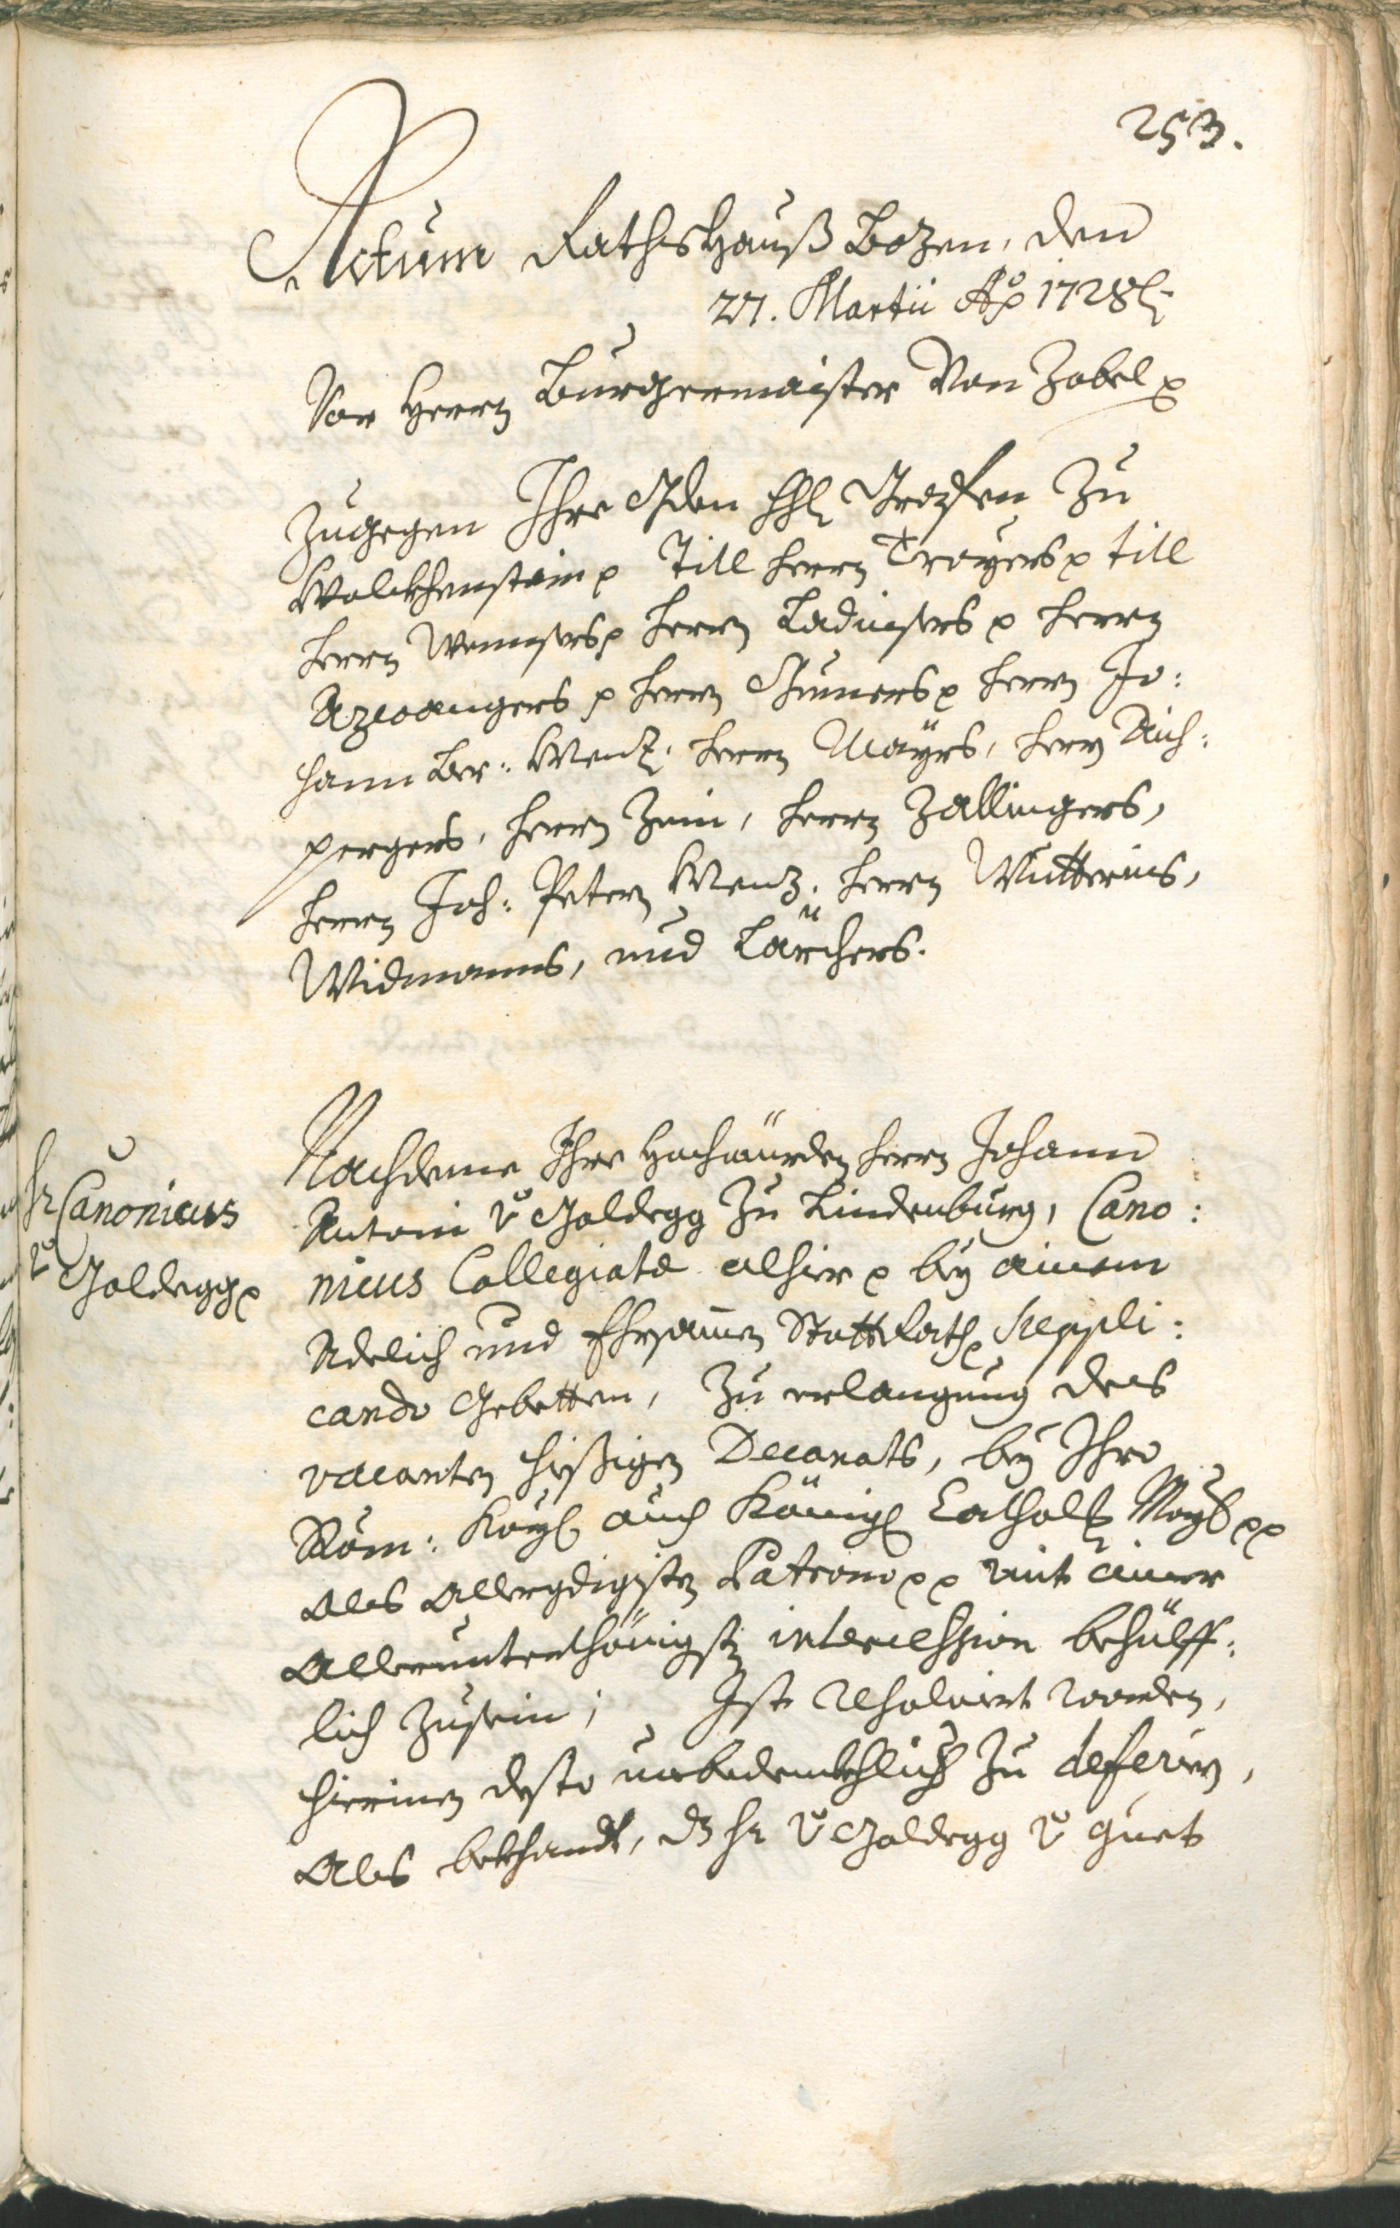 253.
Actum Rathshauß Bozen, den
27. Martii Ao 1728
Vor Herrn Burgermaister Von Zobel p
zugegen Ihro Gden Grafen zu
Wolckhenstein p Titl herrn Troyers p titl
herrn Wenser p herrn Ladinsers p herrn
Azwangers p herrn Gumers p herrn Jo:
hann Bar: Menz, herrn Mayrs, herrn Aich:
pergers, herrn Zein, herrn Zallingers,
herrn Joh: Petern Menz, herrn Mutterins,
Widmanns, und Lärchers.
Hr Canonicus
v Goldegg p
Nachdeme Ihro Hochwürden herrn Johann
Antoni v Goldegg zu Lindenburg, Cano:
nicus Collegiatæ alhier p bey ainem
Adelich und Ehrsamen Stattrath p Suppli:
cando Gebetten, zu erlangung des
vacanten hießigen Decanats, bey Ihro
Röm: Kayl auch Königl Catholl Mayt pp
als allergdigisten Patrono pp mit ainer
allerunterthönigsten intercession behülff:
lich zusein; Ist resolviert worden,
hierinen desto unbedenckhlich zu deferirn,
als bekhandt, dz hr v Goldegg v guet